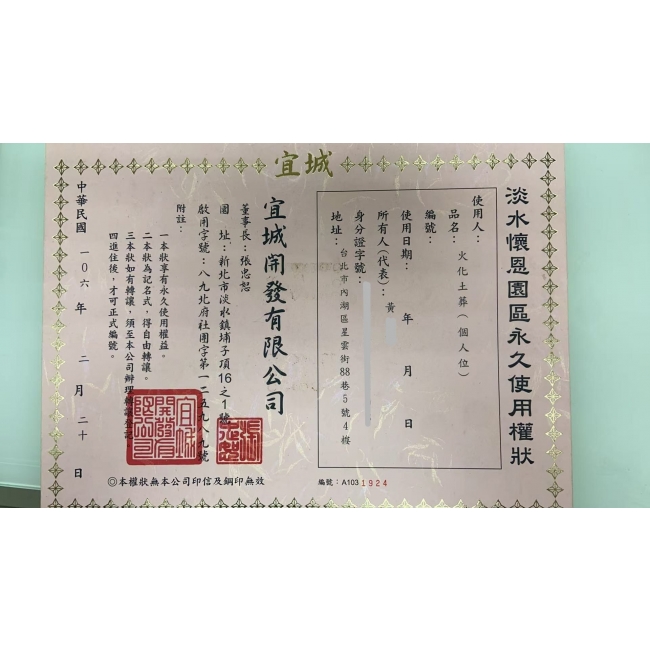 宜城
淡水懷恩園區永久使用權狀
使用人：
品名：火化土葬（個人位）
編號：
使用日期： 年 月 日
所有人(代表)：黃
身分證字號：
地址：台北市內湖區星雲街88巷5號4樓
編號：A103 1924
宜城開發有限公司
董事長：張忠恕
園 址：新北市淡水鎮埔子頂16之1號
啟用字號：八九北府社團字第一二五九八九號
附註：
一本狀享有永久使用權益。
二本狀為記名式，得自由轉讓。
三本狀如有轉讓，須至本公司辦理轉讓登記
四進住後，才可正式編號。
◎本權狀無本公司印信及鋼印無效
中華民國 一０六 年 二 月 二十 日